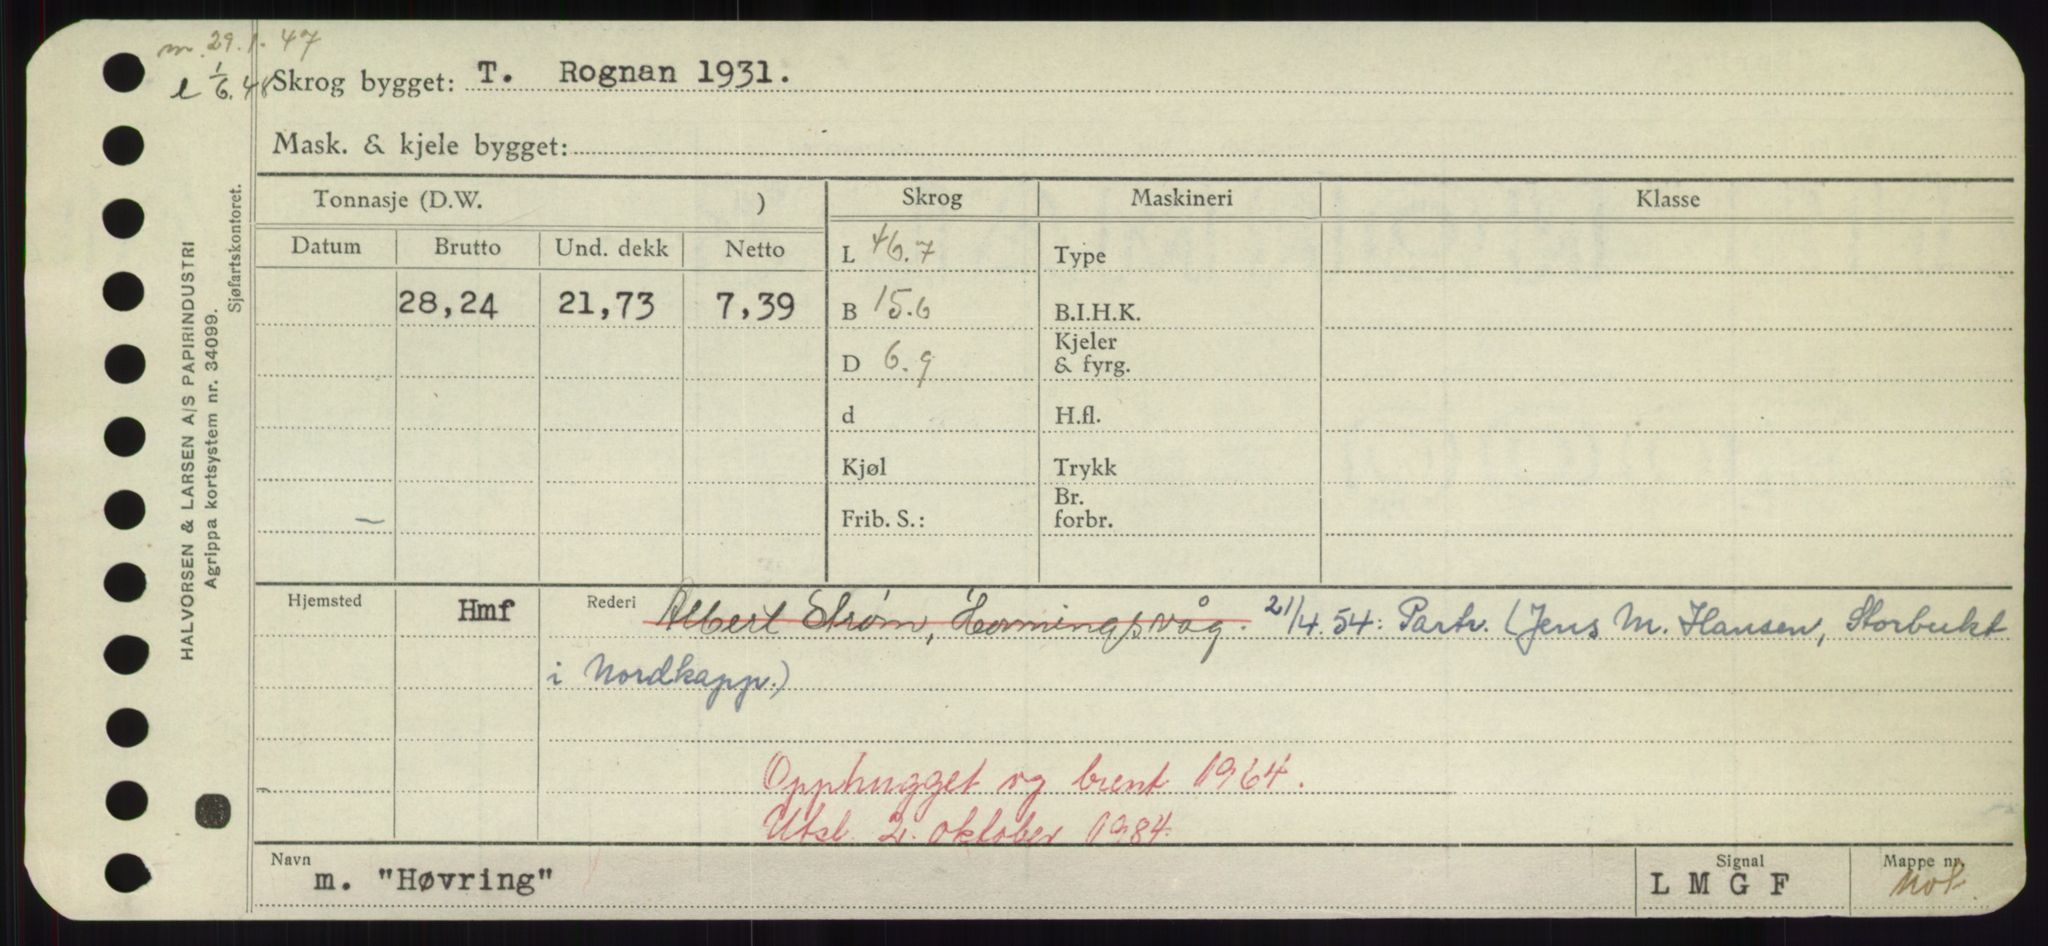 m. 29.1.47
e 1/6.48
Skrog bygget: T. Rognan 1931.
Mask. & kjele bygget:
Tonnasje (D.W. )
Skrog
Maskineri
Klasse
Datum Brutto Und. dekk Netto
28,24 21,73 7,39
L 46.7
B 15.6
D 6.9
d
Kjøl
Frib. S.:
Type
B.I.H.K.
Kjeler
& fyrg.
H.fl.
Trykk
Br.
forbr.
Hjemsted Hmf Rederi Albert Strøm, Honningsvåg. 21/4.54: Partr. (Jens M. Hansen, Storbukt
i Nordkapp.)
Opphugget og brent 1964.
Utsl. 2. oktober 1984.
Navn m. "Høvring"
Signal L M G F
Mappe nr.
HALVORSEN & LARSEN A/S PAPIRINDUSTRI
Agrippa kortsystem nr. 34099.
Sjøfartskontoret.